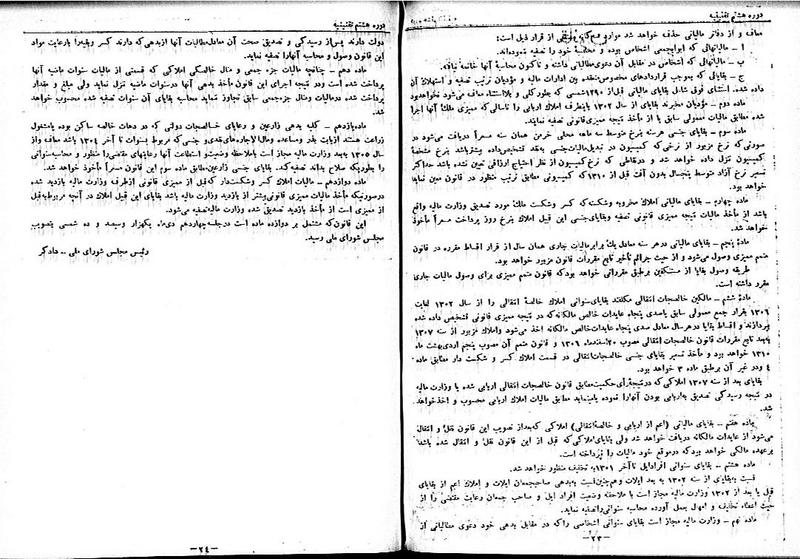 دوره هشتم تقنینیه
صاف و از دفاتر مالیاتی حذف خواهد شد موارد از قرار ذیل است:
۱ – مالیاتهائی که ابوابجمعی اشخاص بوده و محاسبهٔ خود را تصفیه ننموده‌اند.
ب – مالیاتهائی که اشخاص در مقابل آن دعوی مطالباتی داشته و تاکنون محاسبهٔ آنها خاتمه نیافته.
ج – بقایائی که بموجب قراردادهای مخصوص منعقده بین ادارات مالیه و مؤدیان ترتیب تصفیه و استهلاک آن
داده شده. استثنای فوق شامل بقایای مالیاتی قبل از ۱۲۹۰ شمسی که بطور کلی و بلااستثناء صاف می‌شود نخواهد بود
ماده دوم – مؤدیان مخیرند بقایای از سال ۱۳۰۲ باینطرف املاک اربابی را تا سالی که ممیزی ملک آنها اجرا
شده مطابق مالیات معمولی سابق یا از مأخذ نتیجه ممیزی قانونی تصفیه نمایند.
ماده سوم – بقایای جنسی هر سنه بنرخ متوسط سه ماهه محلی خرمن همان سنه مسعراً دریافت میشود در
صورتی که نرخ مزبور از نرخی که کمیسیون در تبدیل مالیات جنسی به نقد تشخیص داده بیشتر باشد بنرخ مشخصهٔ
کمیسیون تنزل داده خواهد شد و در نقاطی که نرخ کمیسیون از نظر احتیاج ارزاقی تعیین نشده باشد حداکثر
تسعیر نرخ آزاد متوسط پنجسال بدون آفت قبل از ۱۳۱۰ که کمیسیونی مطابق ترتیب منظور در قانون معین نماید
خواهد بود.
ماده چهارم – بقایای مالیاتی املاک مخروبه و شکسته که کسر و شکست ملک مورد تصدیق وزارت مالیه واقع
باشد از مأخذ مالیات نتیجه ممیزی قانونی تصفیه و بقایای جنسی این قبیل املاک بنرخ روز پرداخت مسعراً مأخوذ
خواهد شد.
مادهٔ پنجم – بقایای مالیاتی در هر سنه معادل یک برابر مالیات جاری همان سال از قرار اقساط مقرره در قانون
متمم ممیزی وصول می‌شود و از حیث جرائم تأخیر تابع مقررات قانون مزبور خواهد بود.
طریقه وصول بقایا از مستنکفین برطبق مقرراتی خواهد بود که قانون متمم ممیزی برای وصول مالیات جاری
مقرر داشته است.
مادهٔ ششم – مالکین خالصجات انتقالی مکلفند بقایای سنواتی املاک خالصهٔ انتقالی را از سال ۱۳۰۲ لغایت
۱۳۰۶ بقرار جمع معمولی سابق یا صدی پنجاه عایدات خالص مالکانه که در نتیجه ممیزی قانونی تشخیص داده شده
بپردازند و اقساط بقایا در هر سال معادل صدی پنجاه عایدات خالص مالکانه اخذ می‌شود و املاک مزبور از سنه ۱۳۰۷
به بعد تابع مقررات قانون خالصجات انتقالی مصوب ۲۰ اسفند ماه ۱۳۰۶ و قانون متمم آن مصوب پنجم اردی‌بهشت ماه
۱۳۱۰ خواهد بود و مأخذ تسعیر بقایای جنسی خالصجات انتقالی در قسمت املاک کسر و شکست دار مطابق ماده
۴ و در غیر آن برطبق ماده ۳ خواهد بود.
بقایای بعد از سنه ۱۳۰۷ املاکی که در نتیجهٔ رأی حکمیت مطابق قانون خالصجات انتقالی اربابی شده یا وزارت مالیه
در نتیجه رسیدگی تصدیق به اربابی بودن آنها را نموده یا بنماید مطابق مالیات املاک اربابی محسوب و اخذ خواهد
شد.
ماده هفتم – بقایای مالیاتی (اعم از اربابی و خالصهٔ انتقالی) املاکی که بعد از تصویب این قانون نقل و انتقال
می‌شود از عایدات مالکانه دریافت خواهد شد ولی بقایای املاکی که قبل از این قانون نقل و انتقال شده باشد
بر عهده مالکی خواهد بود که در موقع خود مالیات را نپرداخته است.
ماده هشتم – بقایای سنواتی افراد ایل تا آخر ۱۳۰۱ به تخفیف منظور خواهد شد.
نسبت به بقایای از سنه ۱۳۰۲ به بعد ایلات و همچنین نسبت به بدهی صاحبجمعان ایلات و املاک اعم از بقایای
قبل یا بعد از ۱۳۰۲ وزارت مالیه مجاز است با ملاحظه وضعیت افراد ایل و صاحب جمعان رعایت مقتضی را از
حیث اعطاء تخفیف و امهال بعمل آورده محاسبه سنواتی را تصفیه نماید.
ماده نهم – وزارت مالیه مجاز است بقایای سنواتی اشخاصی را که در مقابل بدهی خود دعوی مطالباتی از
–۲۳–
دوره هشتم تقنینیه
دولت دارند پس از رسیدگی و تصدیق صحت آن معادل مطالبات آنها از بدهی که دارند کسر و بقیه را با رعایت مواد
این قانون وصول و محاسبه آنها را تصفیه نماید.
ماده دهم – چنانچه مالیات جزء جمعی و منال خالصگی املاکی که قسمتی از مالیات سنوات ماضیه آنها
پرداخت شده است و در نتیجه اجرای این قانون مأخذ بدهی آنها در سنوات ماضیه تنزل نماید ولی مبلغ و مقدار
پرداخت شده در مالیات و منال جزء جمعی سابق تجاوز ننماید محاسبه بقایای آن سنوات تصفیه شده محسوب خواهد
شد.
ماده یازدهم – کلیه بدهی زارعین و رعایای خالصجات دولتی که در دهات خالصه ساکن بوده یا مشغول
زراعت هستند از بابت بذر و مساعده و مال‌الاجاره‌های نقدی و جنسی که مربوط بسنوات تا آخر ۱۳۰۴ باشد صاف و از
سال ۱۳۰۵ به بعد وزارت مالیه مجاز است با ملاحظه وضعیت و استطاعت آنها رعایتهای مقتضی را منظور و محاسبه سنواتی
را بطوری که صلاح بداند تصفیه کند. بقایای جنسی زارعین مطابق ماده سوم این قانون مسعراً مأخوذ خواهد شد.
ماده دوازدهم – مالیات املاک کسر و شکست‌دار که قبل از ممیزی قانونی از طرف وزارت مالیه بازدید شده
در صورتی که مأخذ مالیات ممیزی قانونی بیشتر از بازدید وزارت مالیه باشد بقایای این قبیل املاک در آنچه مربوط به قبل
از ممیزی است از مأخذ بازدید تصدیق شده وزارت مالیه تصفیه می‌شود.
این قانون که مشتمل بر دوازده ماده است در جلسه چهاردهم دی ماه یکهزار و سیصد و ده شمسی بتصویب
مجلس شورای ملی رسید.
رئیس مجلس شورای ملی – دادگر
–۲۴–